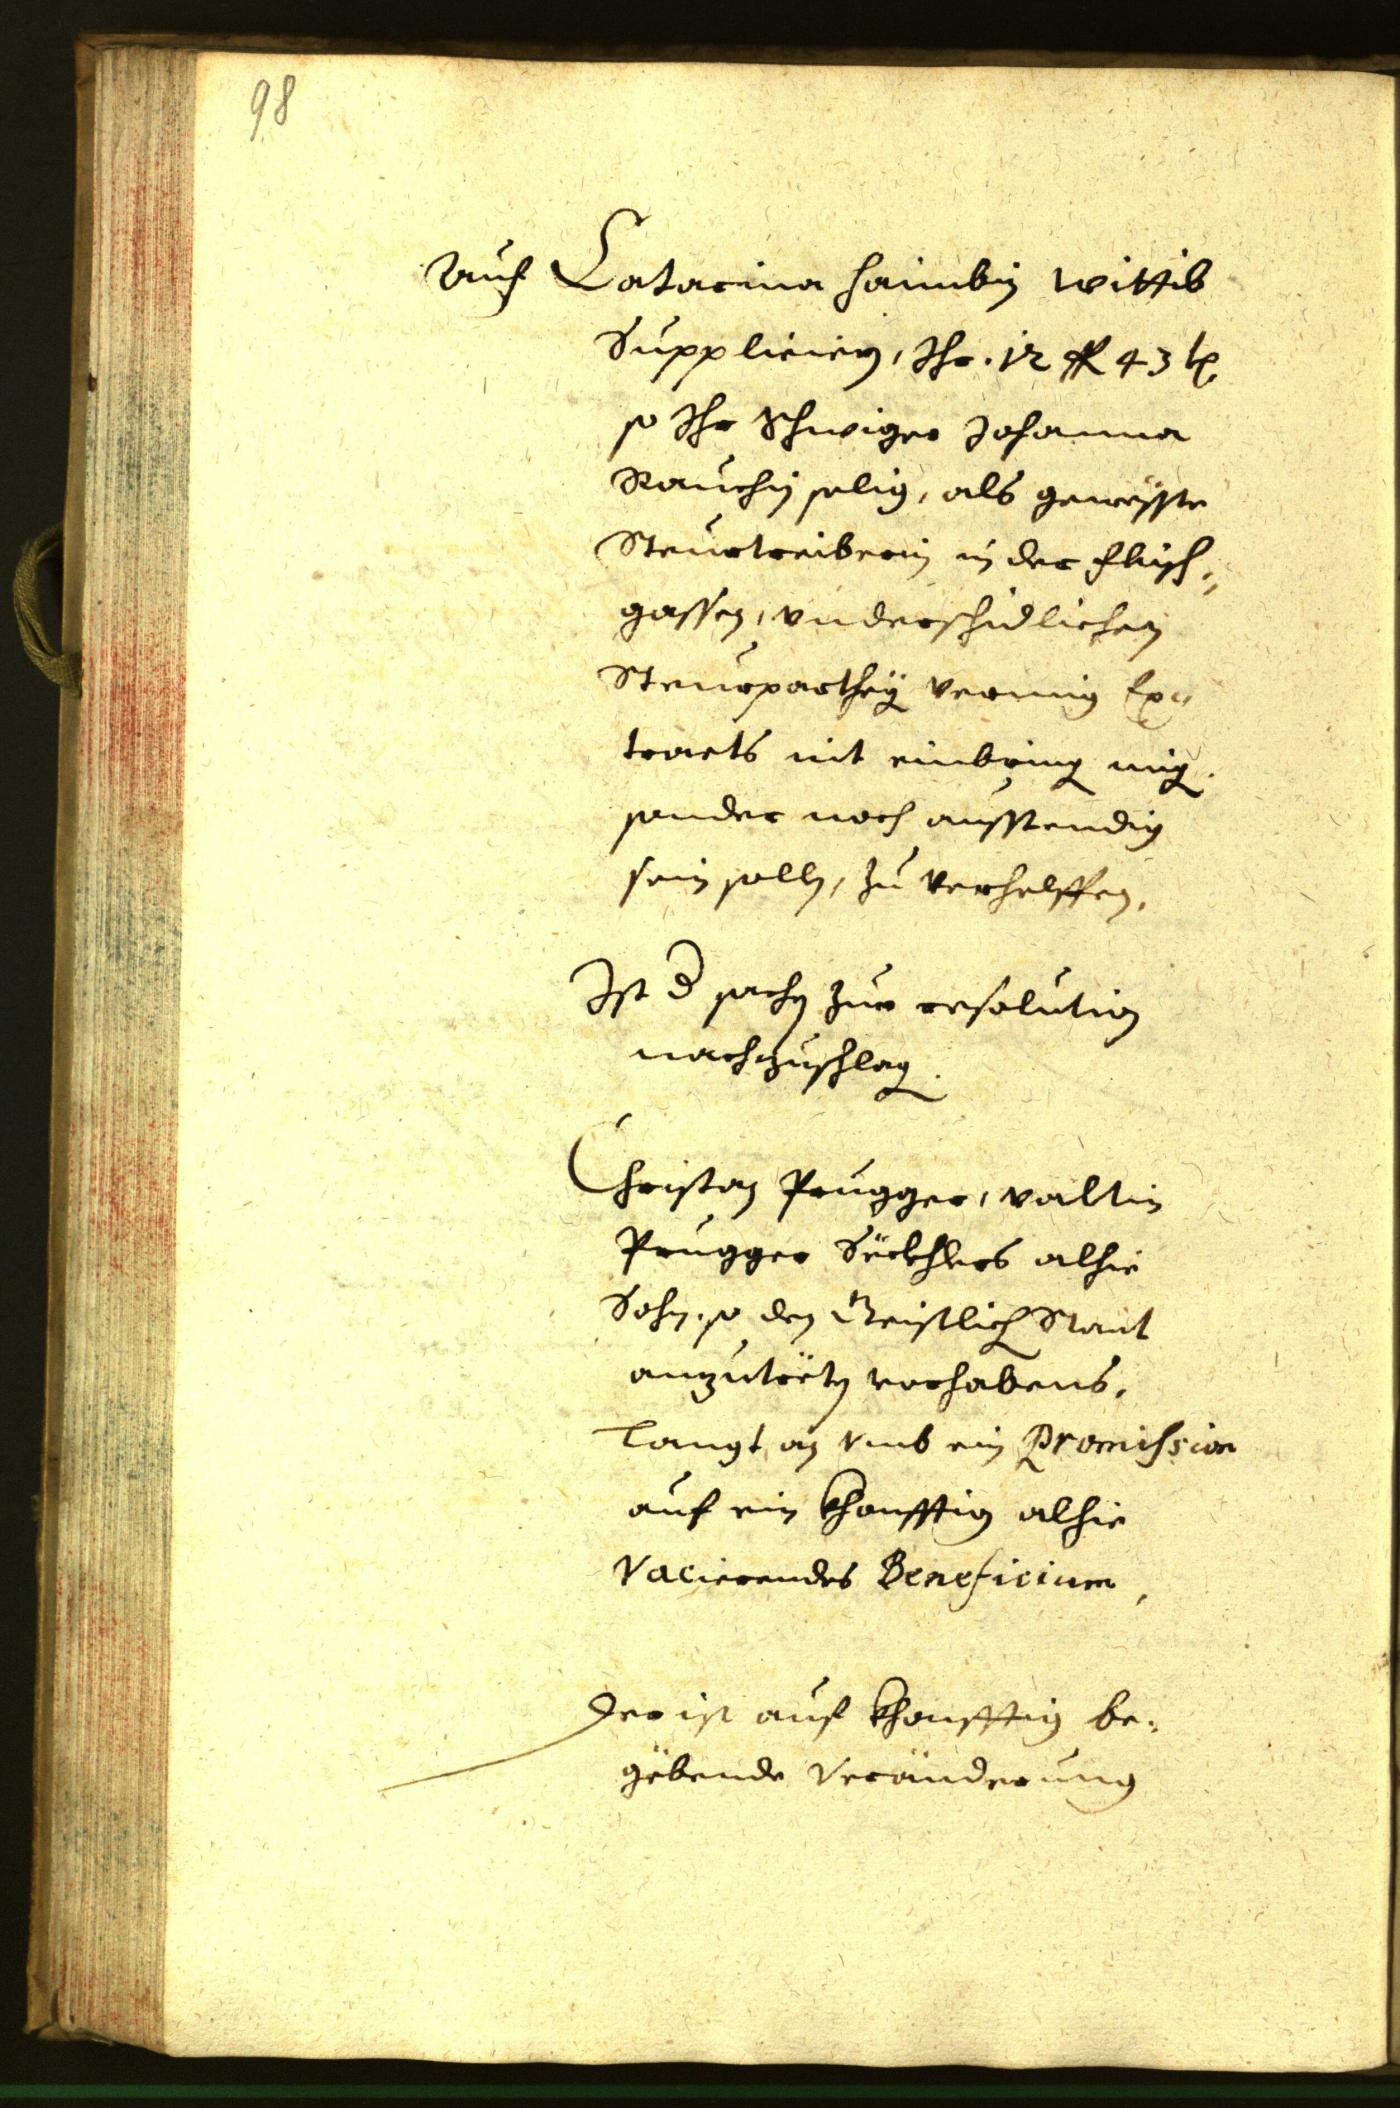 98
Auf Catarina Haimbin Wittib
Supplicieren, Ihr. 12 fl 43 kr.
so Ihr Schwiger Johanna
Rauchin selig, als geweßte
Steurtreiberin in der fleisch„
gassen, underschidlichen
Steurparthey vermig Ex„
tracts nit einbring mig.
sonder noch ausstendig
sein solln, zu verhelffen.
Ist d sachen zur resolution
nachzuschlag.
Christan Prugger, Valtin
Prugger Seckhlers alhie
Sohn, so den Geistlich Stant
anzutretn vorhabens,
langt an umb ein Promission
auf ein khonfftig alhie
Vacierendes Beneficium,
Der ist auf khonfftig be„
gebende Veränderung